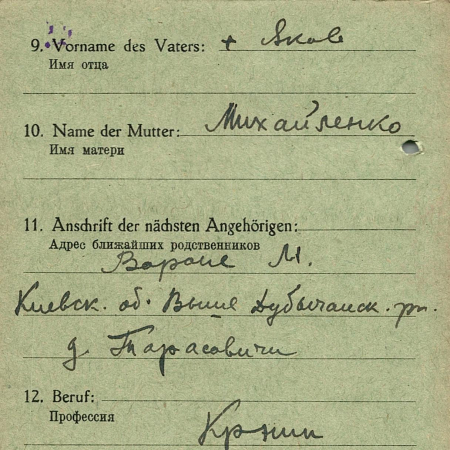 9. Vorname des Vaters: + Яков
Имя отца
10. Name der Mutter: Михайленко
Имя матери
11. Anschrift der nächsten Angehörigen:
Адрес ближайших родственников
М.
Киевск. об. Выше Дубычанск. рн.
д. Тарасовичи
12. Beruf:
Профессия